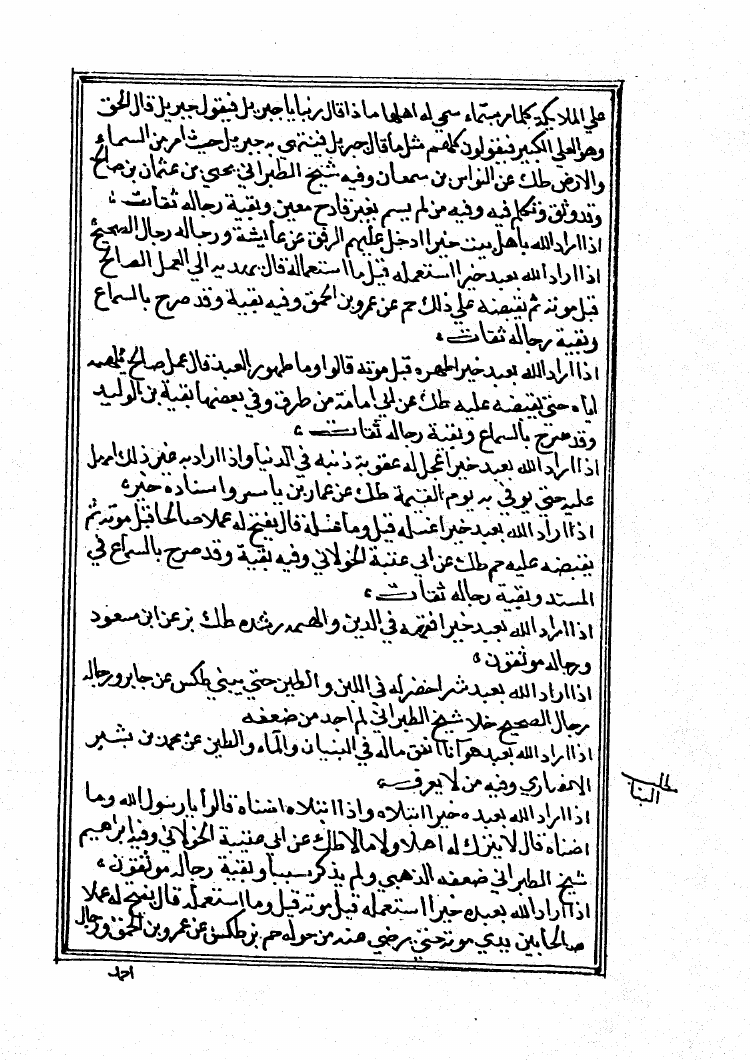 علي الملايكة كلما مر بسماء سمي له اهلها ماذا قال ربنا يا جبريل فيقول جبريل قال الحق
وهو العلي الكبير فيقولون كلهم مثل ما قال جبريل فينتهي به جبريل حيث امر من السماء
والارض طك عن النواس بن سمعان وفيه شيخ الطبراني يحيي بن عثمان بن صالح
وقد وثق وتكلم فيه وفيه من لم يسم بغير قادح معين وبقية رجاله ثقات
اذا اراد الله باهل بيت خيرا ادخل عليهم الرفق عن عايشة ورجاله رجال الصحيح
اذا اراد الله بعبد خيرا استعمله قيل ما استعماله قال يهديه الي العمل الصالح
قبل موته ثم يقبضه علي ذلك حم عن عمرو بن الحمق وفيه بقية وقد صرح بالسماع
وبقية رجاله ثقات
اذا اراد الله بعبد خيرا طهره قبل موته قالوا وما طهور العبد قال عمل صالح يلهمه
اياه حتي يقبضه عليه طك عن ابي امامة من طرق وفي بعضها بقية بن الوليد
وقد صرح بالسماع وبقية رجاله ثقات
اذا اراد الله بعبد خيرا عجل له عقوبة ذنبه في الدنيا واذا اراد به غير ذلك امهل
عليه حتي يوفي به يوم القيمة طك عن عمار بن ياسر واسناده
اذا اراد الله بعبد خيرا عسله قيل وما عسله قال يفتح له عملا صالحا قبل موته ثم
يقبضه عليه حم طك عن ابي عنبة الخولاني وفيه بقية وقد صرح بالسماع في
المسند وبقية رجاله ثقات
اذا اراد الله بعبد خيرا فقهه في الدين والهمه رشده طك بز عن ابن مسعود
ورجاله موثقون
اذا اراد الله بعبد شرا خضر له في اللبن والطين حتي يبني طكس عن جابر ورجاله
رجال الصحيح خلا شيخ الطبراني لم اجد من ضعفه
اذا اراد الله بعبد هوانا انفق ماله في البنيان والماء والطين عن محمد بن بشير
الانصاري وفيه من لا يعرف
اذا اراد الله بعبده خيرا ابتلاه واذا ابتلاه اضناه قالوا يا رسول الله وما
اضناه قال لا يترك له اهلا ولا مالا طك عن ابي عنبة الخولاني وفيه ابراهيم
شيخ الطبراني ضعفه الذهبي ولم يذكر سببا وبقية رجاله موثقون
اذا اراد الله بعبده خيرا استعمله قبل موته قيل وما استعمله قال يفتح له عملا
صالحا بين يدي موته حتي يرضي عنه من حوله حم بز طكس عن عمرو بن الحمق ورجال
احمد